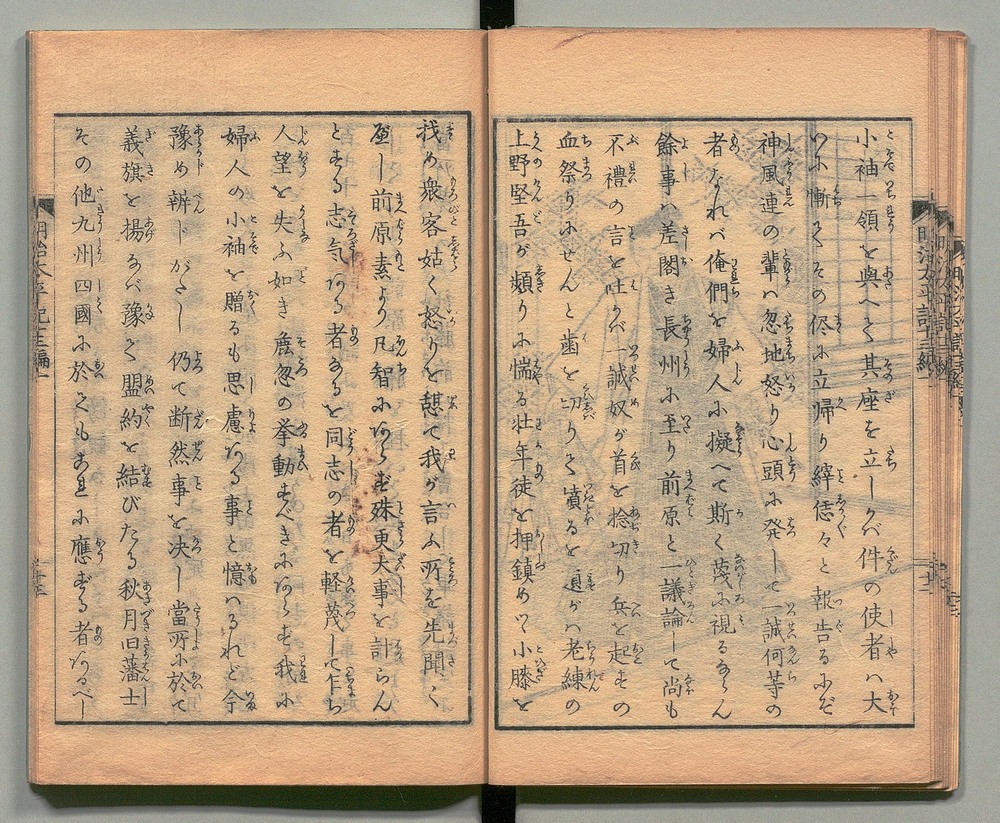 小袖一領を與へて其座を立しかバ件の使者ハ大
いに慚てその侭に立帰り縡恁々と報告るにぞ
神風連の輩ハ忽地怒り心頭に発して一誠何等の
者なれバ俺們を婦人に擬へて斯く蔑に視るならん
餘事ハ差閣き長州に至り前原と一議論して尚も
不禮の言を吐かバ一誠奴が首を捻切り兵を起すの
血祭りにせんと歯を切りて憤るを遉が老練の
上野堅吾が頻りに惴る壮年徒を押鎮めつゝ小膝を
找め衆客姑く怒りを憩て我が言ふ所を先聞く
べし前原素より凡智にあらず殊更大事を計らん
とする志気ある者なるを同志の者を軽蔑して乍ち
人望を失ふ如き麁忽の挙動すべきにあらず我に
婦人の小袖を贈るも思慮ある事と憶ハるれど今
豫め辧じがたし 仍て断然事を决し當所に於て
義旗を揚なバ豫て盟約を結びたる秋月旧藩士
その他九州四國に於てもこれに應ずる者あるべし
明治太平記十三編一